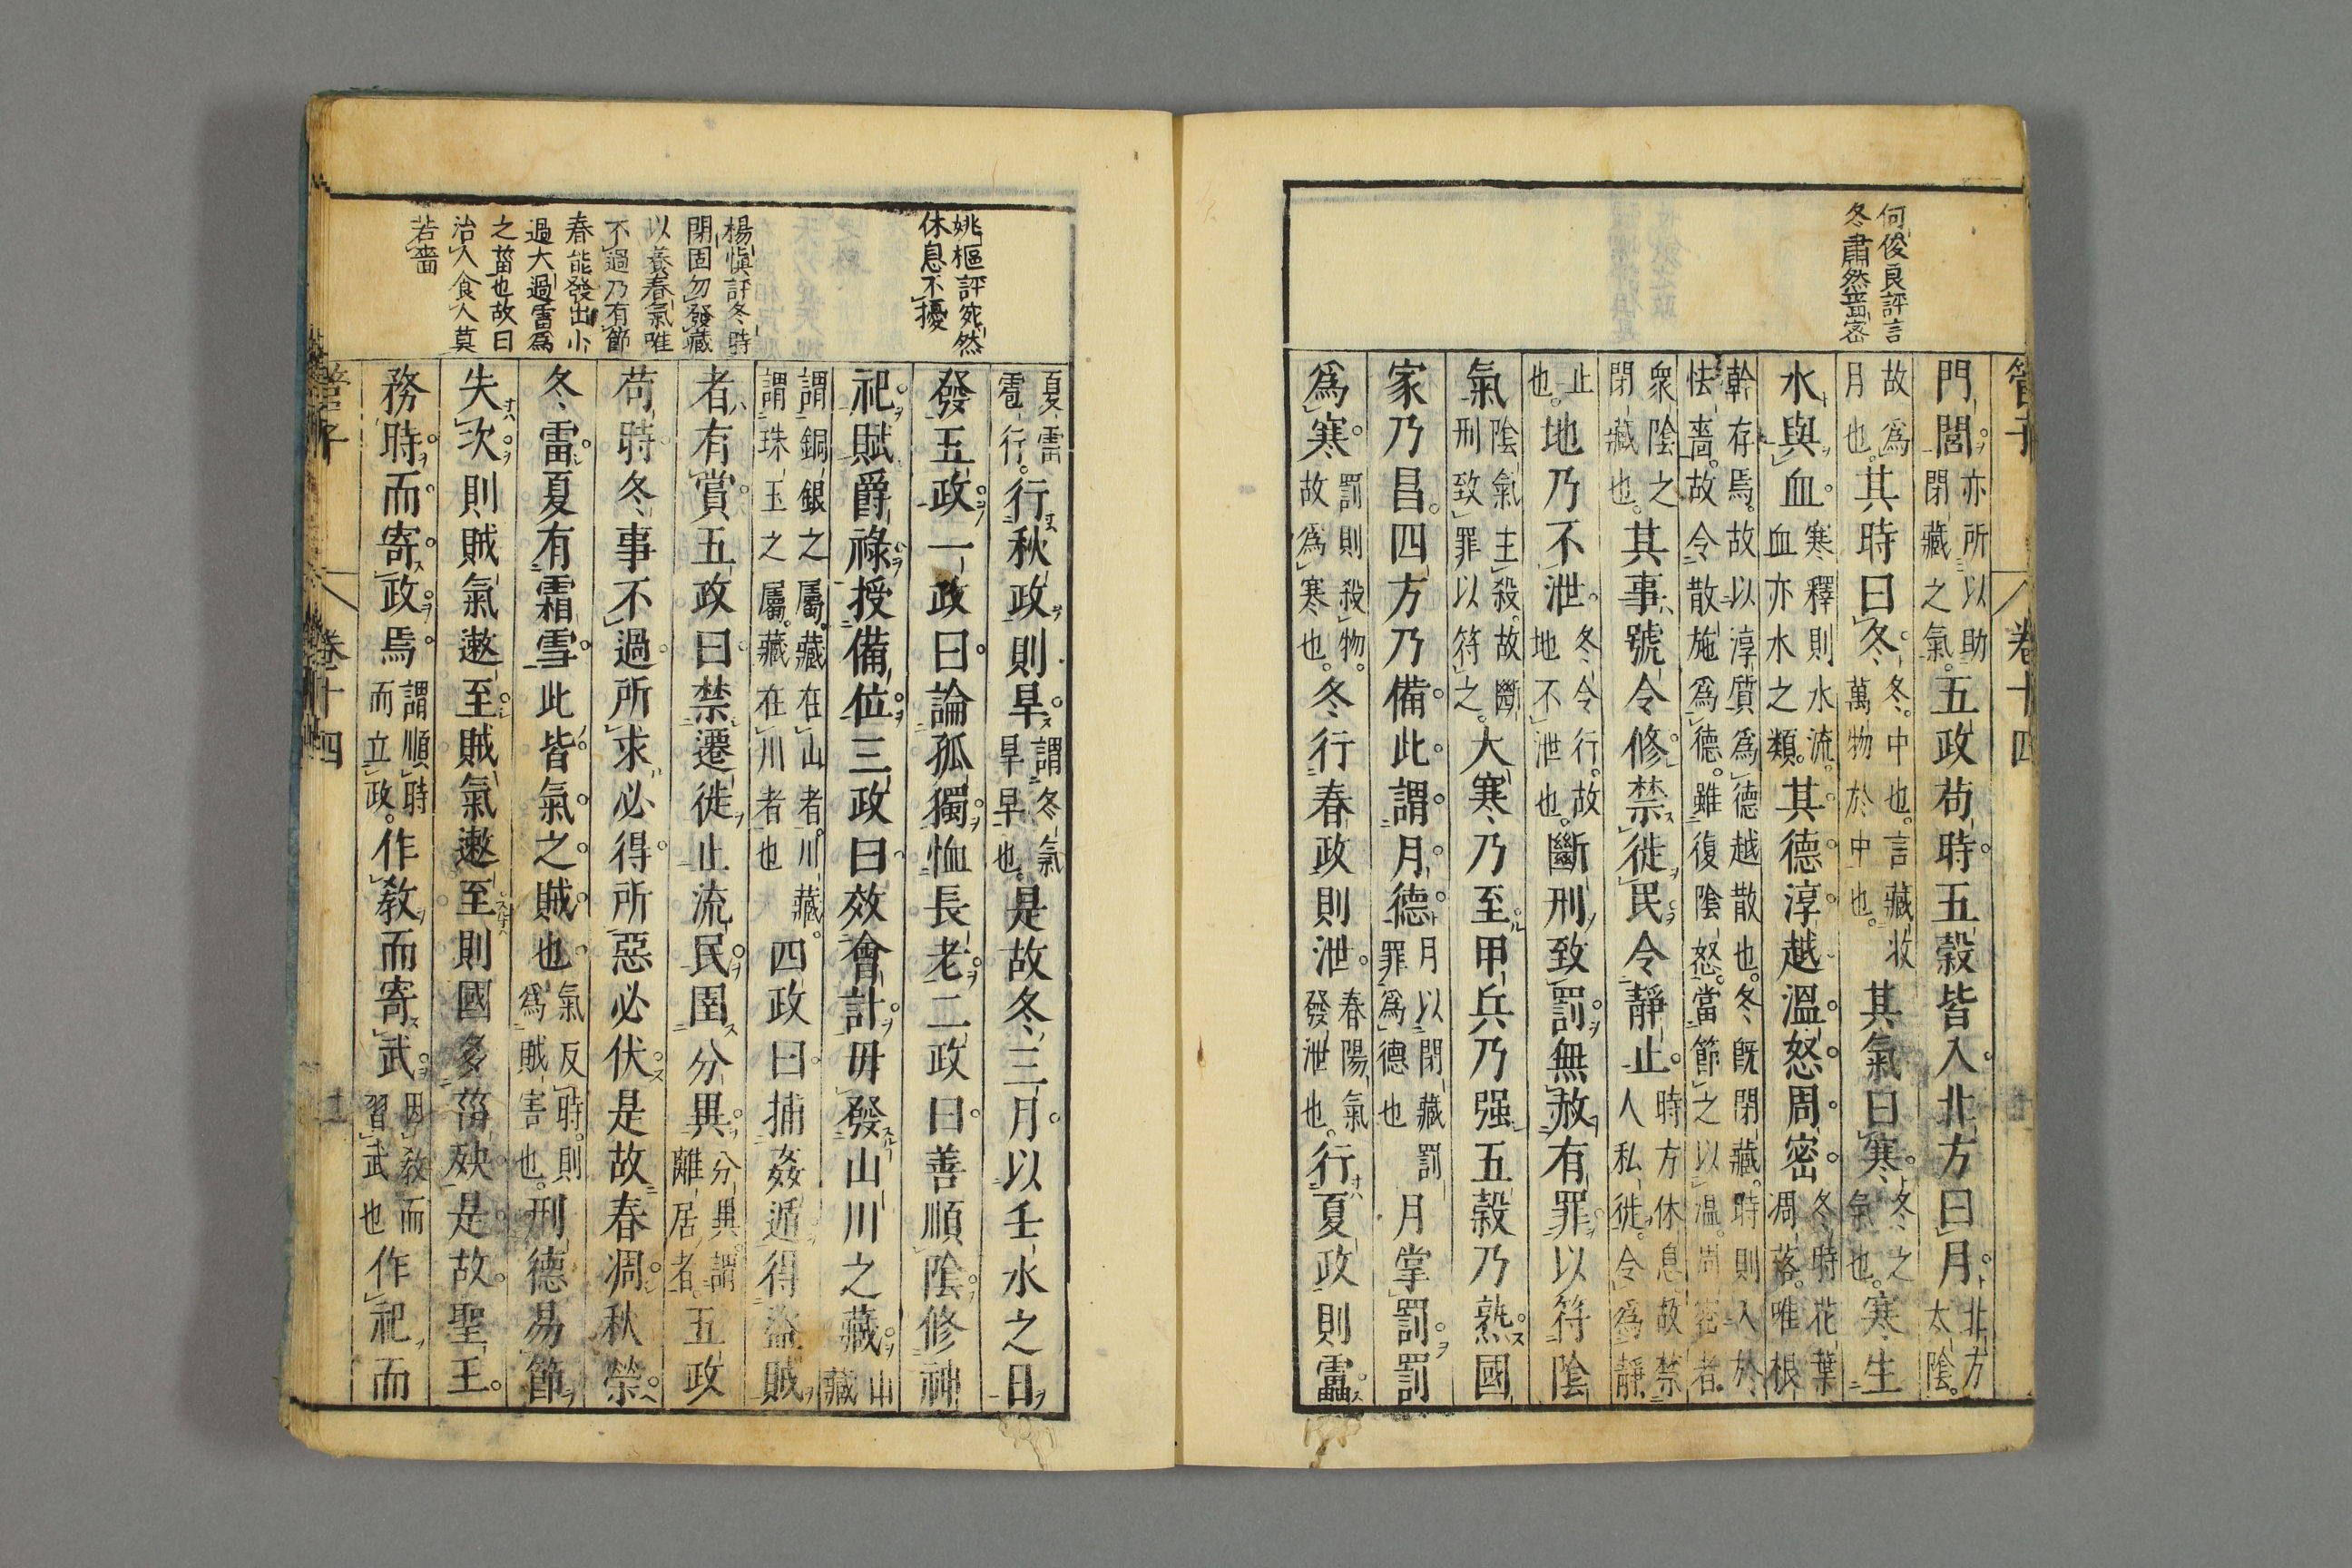 何俊良評言
冬肅然嗇密
管子 卷十四
門閭亦所以助閉藏之氣。五政苟時五穀皆入北方曰月北方太陰。
故爲月也。其時曰冬冬中也。言藏收萬物於中也。其氣曰寒冬之氣也。寒生
水與血寒釋則水流。血亦水之類。其德淳越溫怒周密冬時花葉凋落。唯根
幹存焉。故以淳質爲德越散也。冬既閉藏。時則入於
怯嗇。故令散施爲德。雖復陰怒。當節之以温。周密者
衆陰之閉藏也。其事號令修禁徙民令靜止時方休息故禁人私徙。令爲靜
止也。地乃不泄冬令行。故地不泄也。斷刑致罰無赦有罪以符陰
氣陰氣主殺。故斷刑致罪以符之。大寒乃至甲兵乃强五穀乃熟國
家乃昌四方乃備此謂月德月以閉藏罰罪爲德也月掌罰罰
爲寒罰則殺物。故爲寒也。冬行春政則泄春陽氣發泄也。行夏政則靁
姚樞評宛然
休息不擾
楊愼評冬時
閉固勿發藏
以養春氣唯
不過乃有節
春能發出小
過大過害爲
之菑也故曰
治人食人莫
若嗇
夏雷雹行。行秋政則旱謂冬氣旱旱也。是故冬三月以壬水之日
發五政一政曰論孤獨恤長老二政曰善順陰修神
祀賦爵祿授備位三政曰效會計毋發山川之藏山藏
謂銅銀之屬。藏在山者。川藏。
謂珠玉之屬。藏在川者也四政曰捕姦遁得盜賊
者有賞五政曰禁遷徙止流民圉分異分異。謂離居者。五政
苟時冬事不過所求必得所惡必伏是故春凋秋榮
冬雷夏有霜雪此皆氣之賊也氣反時。則爲賊害也。刑德易節
失次則賊氣遬至賊氣遬至則國多菑殃是故聖王
務時而寄政焉謂順時而立政。作教而寄武因教而習武也作祀而
管子 卷十四